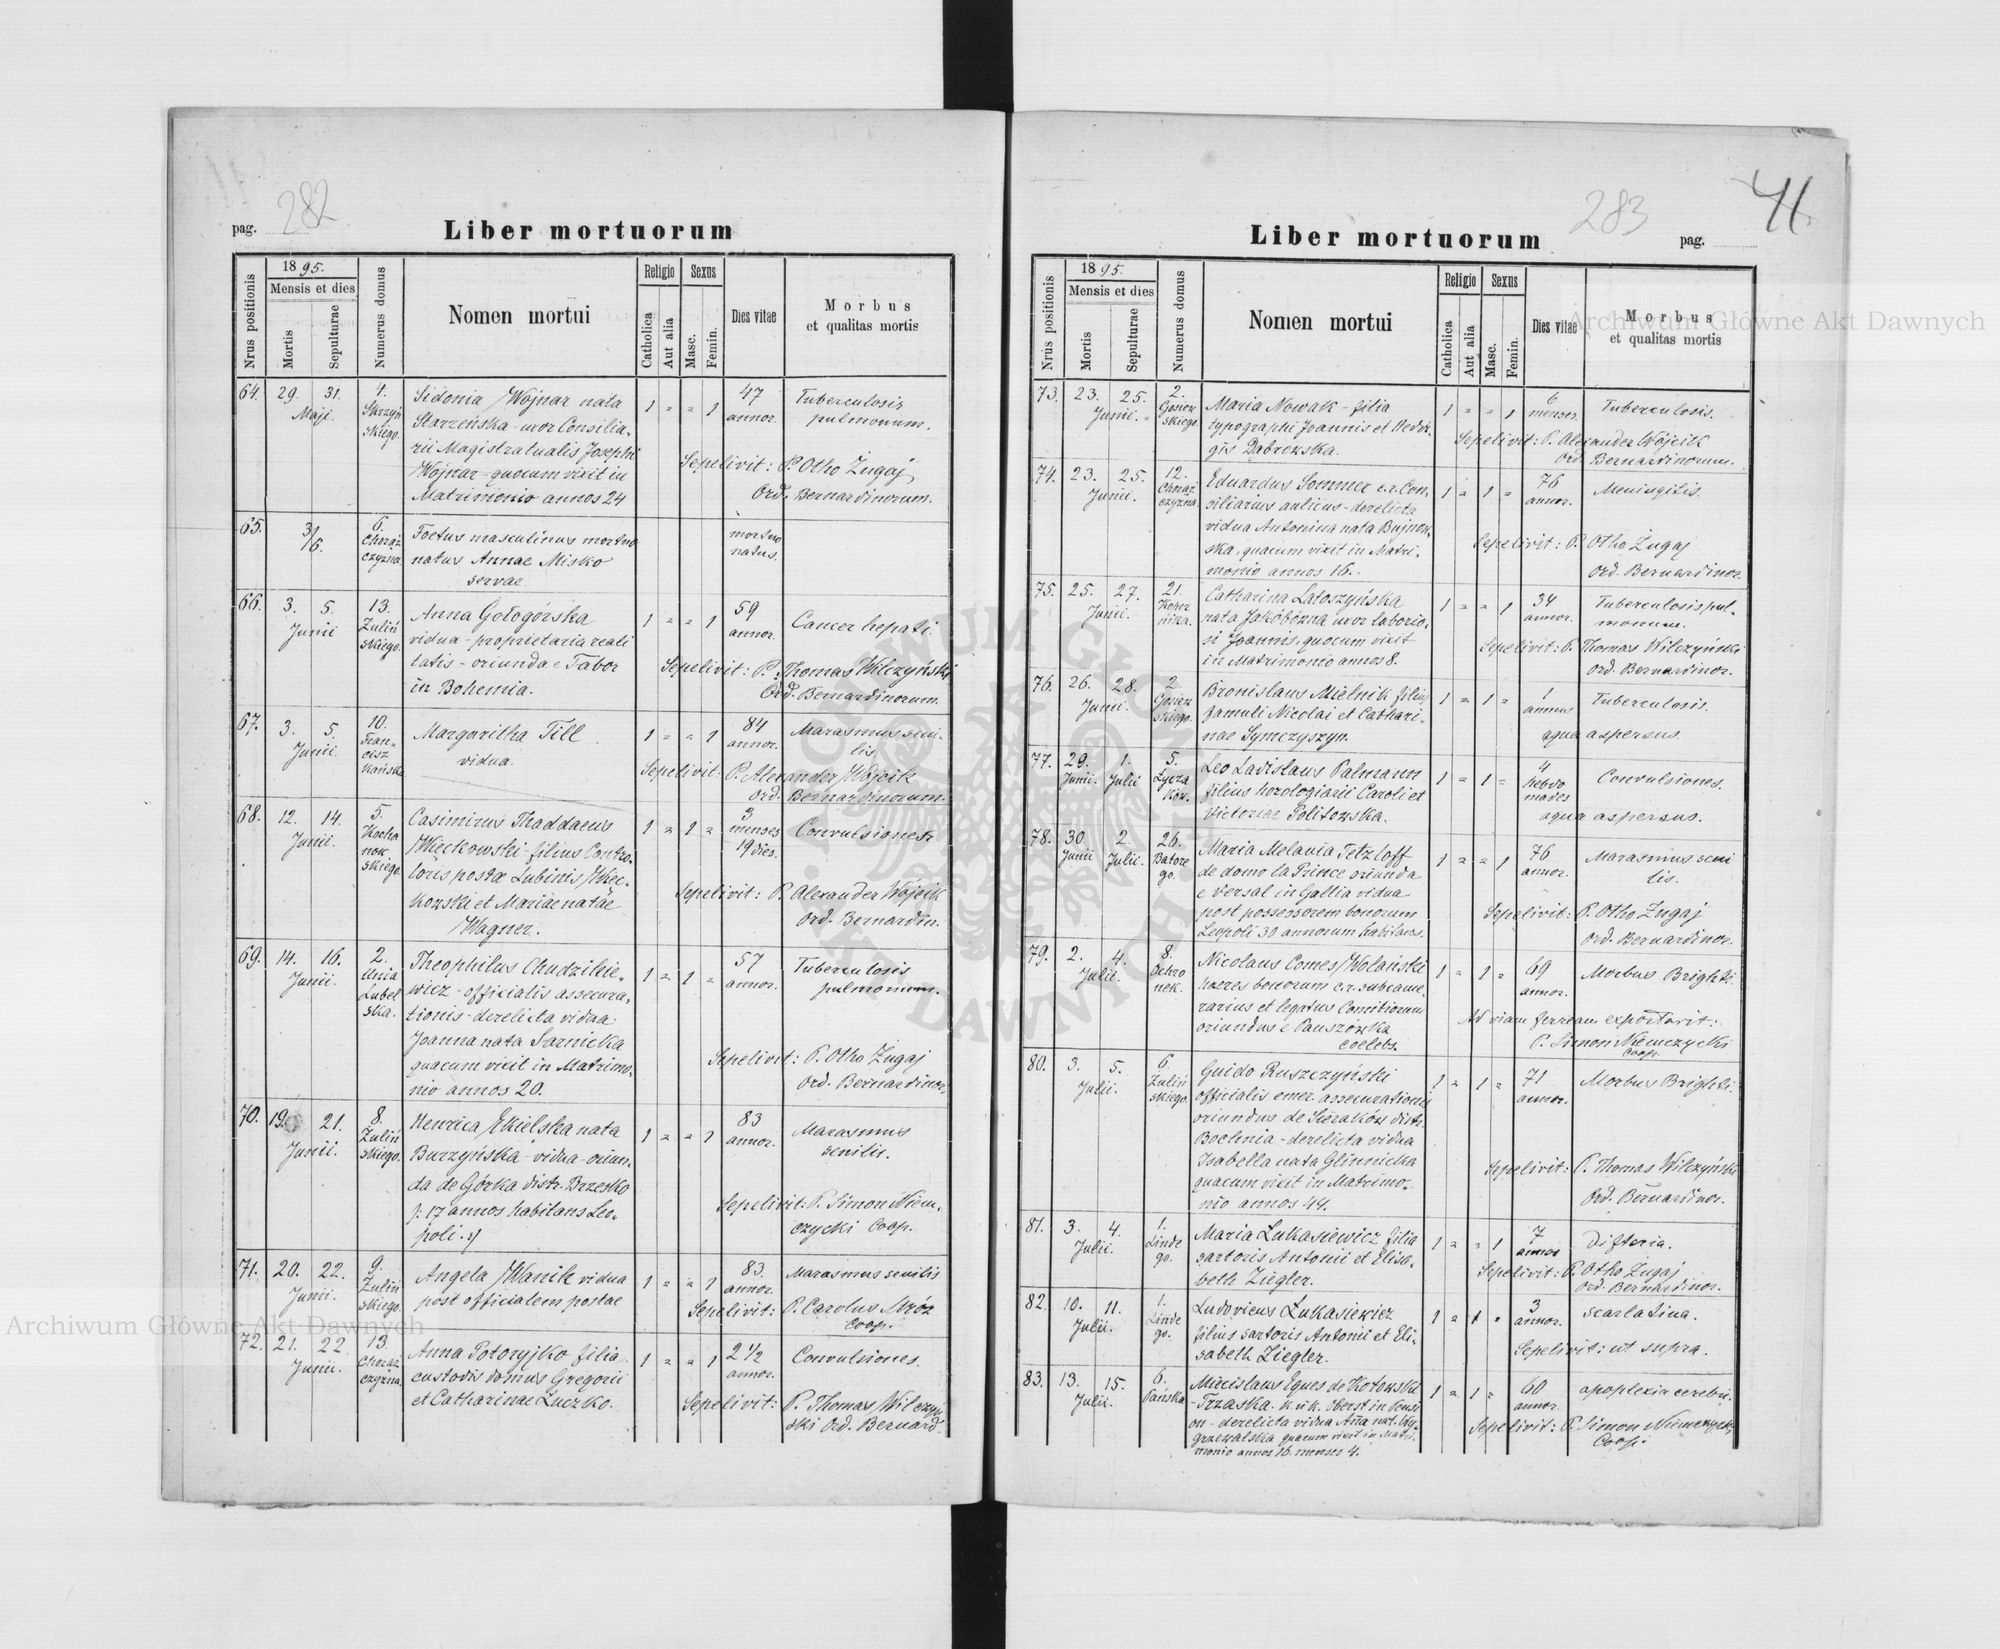 pag. 282
Liber mortuorum
Nrus positionis
1895.
Mensis et dies
Mortis
Sepulturae
Numerus domus
Nomen mortui
Religio
Catholica
Aut alia
Sexus
Masc.
Femin.
Dies vitae
Morbus
et qualitas mortis
64. 29. 31. Maji. 4. Skrzyń
skiego.
Sidonia Wojnar nata
Starzeńska - uxor Consilia-
rii Magistratualis Josephi
Wojnar - quocum vixit in
Matrimonio annos 24
1 " " 1
47
annor.
Tuberculosis
pulmonum.
Sepelivit: P. Otho Zugaj
Ord. Bernardinorum.
65. 31/6. 6.
Chorąż
czyzna.
Foetus masculinus mortuo
natus Annae Misko
servae
mortuo
natus.
66. 3. 5. Junii 13.
Zuliń
skiego.
Anna Gołogórska
vidua - proprietaria reali
tatis - oriunda e Tabor
in Bohemia.
1 " " 1
59
annor.
Cancer hepati.
Sepelivit: P. Thomas Wilczyński
Ord. Bernardinorum.
67. 3. 5. Junii 10.
Fran-
cisz
kańska
Margaritha Till
vidua.
1 " " 1
84
annor.
Marasmus seni-
lis.
Sepelivit: P. Alexander Wójcik
Ord. Bernardinorum.
68. 12. 14. Junii. 5.
Kocha
now
skiego.
Casimirus Thaddaeus
Więckowski - filius Contro-
loris postae Lubinis Więc-
kowski et Mariae natae
Wagner.
1 " 1 "
3
menses
19 dies.
Convulsiones
Sepelivit: P. Alexander Wójcik
Ord. Bernardin.
69. 14. 16. Junii. 2.
Unia
Lubel
ska.
Theophilus Chudzikie-
wicz - officialis assecura-
tionis - derelicta vidua
Joanna nata Sarnicka
quacum vixit in Matrimo-
nio annos 20.
1 " 1 "
57
annor.
Tuberculosis
pulmonum.
Sepelivit: P. Otho Zugaj
Ord. Bernardinor.
70. 19. 21. Junii. 8.
Zuliń
skiego.
Henrica Ekielska nata
Burzyńska - vidua - oriun-
da de Górka distr. Brzesko
/: 17 annos habitans Leo-
poli. :/
1 " " 1
83
annor.
Marasmus
senilis.
Sepelivit: P. Simon Niem-
czycki Coop.
71. 20. 22. Junii. 9.
Zuliń
skiego.
Angela Wanik vidua
post officialem postae
1 " " 1
83.
annor.
Marasmus senilis
Sepelivit: P. Carolus Mróz
Coop.
72. 21. 22. Junii. 13.
Chorąż
czyzna.
Anna Potoryjko filia
custodis domus Gregorii
et Catharinae Luczko.
1 " " 1
2 1/2
annor.
Convulsiones.
Sepelivit: P. Thomas Wilczyń
ski Ord. Bernard.
283
41
Liber mortuorum
pag.
Nrus positionis
1895.
Mensis et dies
Mortis
Sepulturae
Numerus domus
Nomen mortui
Religio
Catholica
Aut alia
Sexus
Masc.
Femin.
Dies vitae
Morbus
et qualitas mortis
73. 23. 25. Junii. 2.
Gosiew
skiego.
Maria Nowak - filia
typographi Joannis et Hedvi-
gis Dąbrowska.
1 " " 1
6
menses.
Tuberculosis.
Sepelivit: P. Alexander Wójcik
Ord. Bernardinorum.
74. 23. 25. Junii. 12.
Chorąż
czyzna.
Eduardus Sommer c.r. Con-
siliarius aulicus - derelicta
vidua Antonina nata Bujnow-
ska, quacum vixit in Matri-
monio annos 16.
1 " 1 "
76
annor.
Meningitis.
Sepelivit: P. Otho Zugaj
Ord. Bernardinor.
75. 25. 27. Junii. 21.
Koper
nika.
Catharina Latoszyńska
nata Jakóbówna uxor laborio-
si Joannis, quocum vixit
in Matrimonio annos 8.
1 " " 1
34
annor.
Tuberculosis pul-
monum.
Sepelivit: P. Thomas Wilczyński
Ord. Bernardinor.
76. 26. 28. Junii. 2.
Gosiew
skiego.
Bronislaus Mielnik filius
famuli Nicolai et Cathari-
nae Symczyszyn.
1 " 1 "
1
annus
Tuberculosis.
aqua aspersus.
77. 29. Junii. 1. Julii 5.
Łycza
kow.
Leo Ladislaus Palmann
filius horologiarii Caroli et
Victoriae Politowska.
1 " 1 "
4
hebdo
mades
Convulsiones.
aqua aspersus.
78. 30. Junii 2. Julii. 26.
Batore
go.
Maria Melania Tetzloff
de domo la Prince oriunda
e Versal in Gallia vidua
post possessorem bonorum
Leopoli 30 annorum habitans.
1 " " 1
76
annor.
Marasmus seni
lis.
Sepelivit: P. Otho Zugaj
Ord. Bernardinor.
79. 2. 4. Julii. 8.
Ochro
nek.
Nicolaus Comes Wolański
haeres bonorum c.r. subcame-
rarius et legatus Comitiorum
oriundus e Pauszówka
coelebs.
1 " 1 "
69
annor.
Morbus Brighti
Ad viam ferream exportavit:
P. Simon Niemczycki
Coop.
80. 3. 5. Julii. 6.
Zuliń
skiego.
Guido Ruszczyński
officialis emer. assecurationis
oriundus de Sieraków distr.
Bochnia - derelicta vidua
Isabella nata Glinnicka
quacum vixit in Matrimo-
nio annos 44.
1 " 1 "
71
annor.
Morbus Brighti.
Sepelivit: P. Thomas Wilczyński
Ord. Bernardinor.
81. 3. 4. Julii. 1.
Linde
go.
Maria Łukasiewicz filia
sartoris Antonii et Elisa-
beth Ziegler.
1 " " 1
7
annor
Difteria.
Sepelivit: P. Otho Zugaj
Ord. Bernardinor.
82. 10. 11. Julii. 1.
Linde
go.
Ludovicus Łukasiewicz
filius sartoris Antonii et Eli-
sabeth Ziegler.
1 " 1 "
3
annor.
Scarlatina.
Sepelivit: ut supra.
83. 13. 15. Julii. 6.
Pańska
Miecislaus Eques de Kotowski
- Trzaska. k. u. k. Oberst in Pensi
on - derelicta vidua Anna nat. Wy-
grzewalska quacum vixit in Matri-
monio annos 16. menses 4.
1 " 1 "
60
annor.
apoplexia cerebri.
Sepelivit: P. Simon Niemczycki
Coop.
Archiwum Główne Akt Dawnych
Archiwum Główne Akt Dawnych
ARCHIWUM GŁÓWNE AKT DAWNYCH